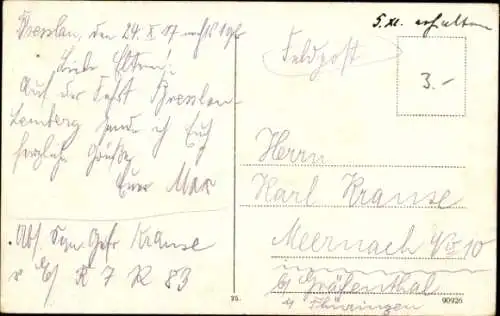 Breslau, den 24. X 17 nachts 1 Uhr
Liebe Eltern!
Auf der Fahrt Breslau-
Lemberg sende ich Euch
herzliche Grüße
Euer Max
Abs. Gefr Krause
R 7 R 83
5. XI. erhalten
Feldpost
3.-
Herrn
Karl Krause
Meernach 10
b/ Gräfenthal
i/ Thüringen
25.
90926